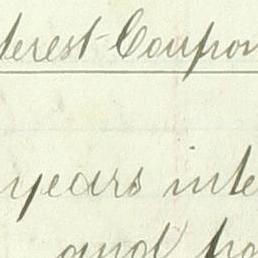 terest Coupon
years inte
and